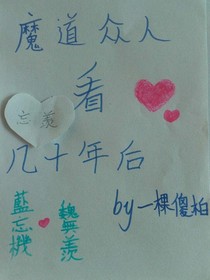 魔道众人
看
忘羨
几十年后
藍忘機
魏無羨
by一棵傻柏